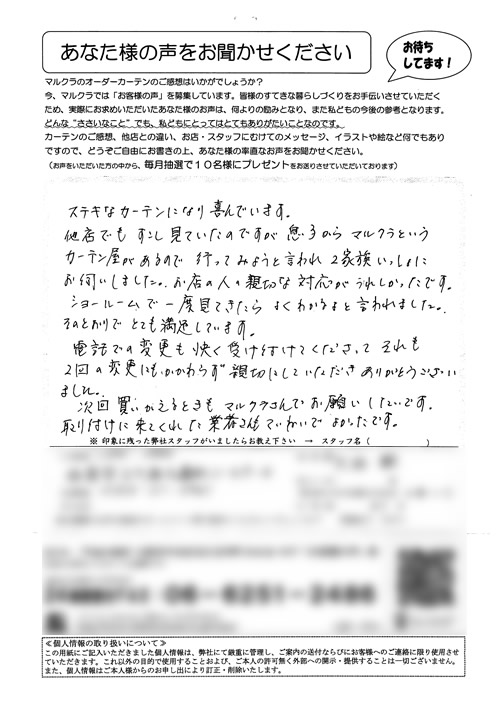 あなた様の声をお聞かせください
お待ち
してます!
マルクラのオーダーカーテンのご感想はいかがでしょうか?
今、マルクラでは「お客様の声」を募集しています。皆様のすてきな暮らしづくりをお手伝いさせていただく
ため、実際にお求めいただいたあなた様のお声は、何よりの励みとなり、また私どもの今後の参考となります。
どんな“ささいなこと”でも、私どもにとってはとてもありがたいことなのです。
カーテンのご感想、他店との違い、お店・スタッフにむけてのメッセージ、イラストや絵など何でもあり
ですので、どうぞご自由にお書きの上、あなた様の率直なお声をお聞かせください。
(お声をいただいた方の中から、毎月抽選で10名様にプレゼントをお送りさせていただいております)
ステキなカーテンになり喜んでいます。
他店でもすこし見ていたのですが息子からマルクラという
カーテン屋があるので行ってみようと言われ2家族いっしょに
お伺いしました。お店の人の親切な対応がうれしかったです。
ショールームで一度見てきたらよくわかるよと言われました。
そのとおりでとても満足しています。
電話での変更も快く受け付けてくださって それも
2回の変更にもかかわらず親切にしていただきありがとうござい
ました。
次回買いかえるときもマルクラさんでお願いしたいです。
取り付けに来てくれた業者さんもていねいでよかったです。
※印象に残った弊社スタッフがいましたらお教え下さい → スタッフ名( )
≪個人情報の取り扱いについて≫
この用紙にご記入いただきました個人情報は、弊社にて厳重に管理し、ご案内の送付ならびにお客様へのご連絡に限り使用させ
ていただきます。これ以外の目的で使用することおよび、ご本人の許可無く外部への開示・提供することは一切ございません。
また、個人情報はご本人様からのお申し出により訂正・削除いたします。